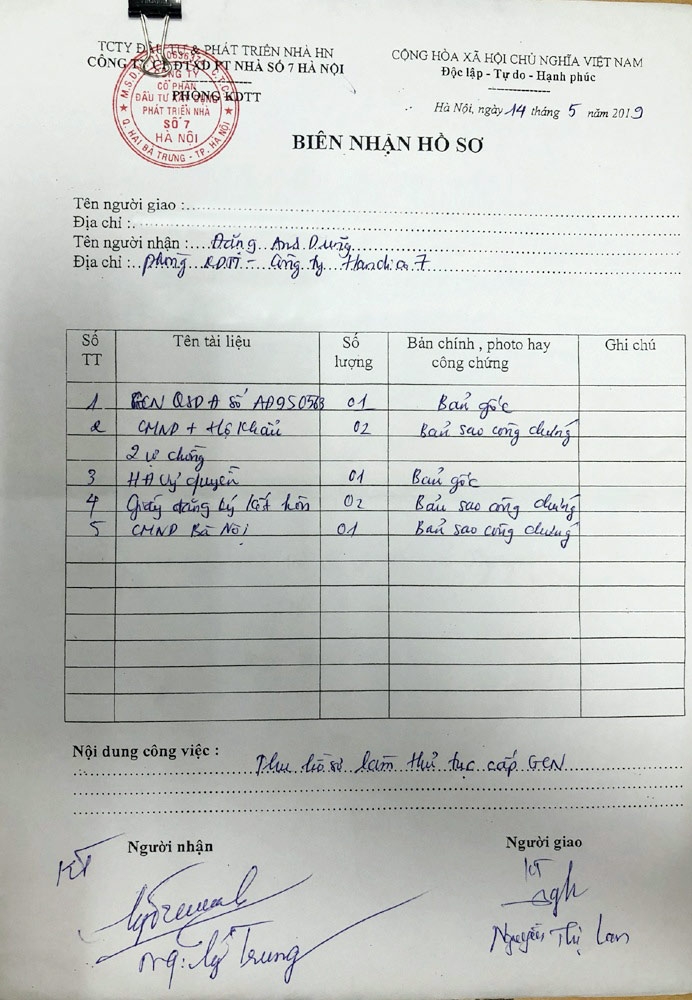 TCTY ĐẦU TƯ & PHÁT TRIỂN NHÀ HN
CÔNG TY CP ĐTXD PT NHÀ SỐ 7 HÀ NỘI
PHÒNG KDTT
CỘNG HÒA XÃ HỘI CHỦ NGHĨA VIỆT NAM
Độc lập - Tự do - Hạnh phúc
Hà Nội, ngày 14 tháng 5 năm 2019
CÔNG TY
CỔ PHẦN
ĐẦU TƯ XÂY DỰNG
PHÁT TRIỂN NHÀ
SỐ 7
HÀ NỘI
Q. HAI BÀ TRƯNG - TP. HÀ NỘI
BIÊN NHẬN HỒ SƠ
Tên người giao :
Địa chỉ :
Tên người nhận : Đặng Anh Dũng
Địa chỉ : phòng KDTT - Công ty Handico 7
Số TT Tên tài liệu Số lượng Bản chính , photo hay công chứng Ghi chú
1 GCN QSDĐ số AD950563 01 Bản gốc
2 CMND + Hộ khẩu 02 Bản sao công chứng
2 vợ chồng
3 HĐ Uỷ quyền 01 Bản gốc
4 Giấy đăng ký kết hôn 02 Bản sao công chứng
5 CMND Bà Nội 01 Bản sao công chứng
Nội dung công việc :
Thu hồ sơ làm thủ tục cấp GCN
Người nhận Người giao
KT KT
Nguyễn Thị Lan
Trung